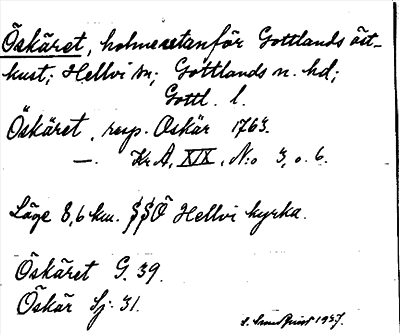 Öskäret, holme utanför Gottlands öst-
kust; Hellvi sn; Gottlands n. hd;
Gottl. l.
Öskäret, resp. Oskär 1763.
—. Kr A, XIX, N:o 3, o. 6.
Läge 8,6 km. SSÖ Hellvi kyrka.
Öskäret G. 39.
Öskär Sj. 31.
1937.